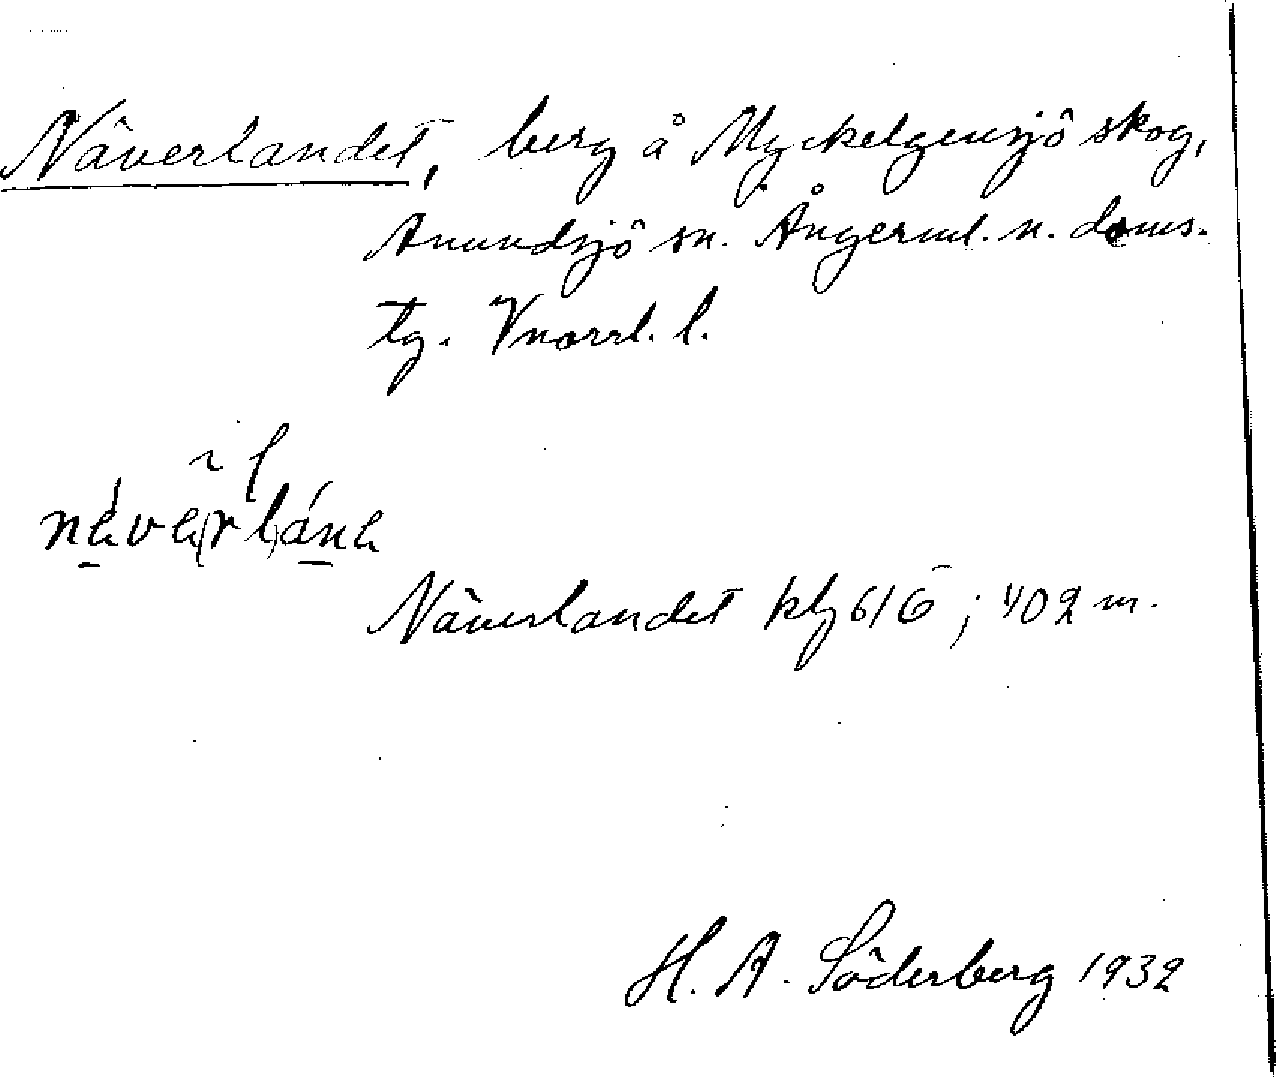 Näverlandet, berg å Myckelgensjö skog,
Anundsjö sn. Ångerml. n. doms.
tg. Vnorrl. l.
Näverlandet kbl 61 G; 402 m.
H. A. Söderberg 1932